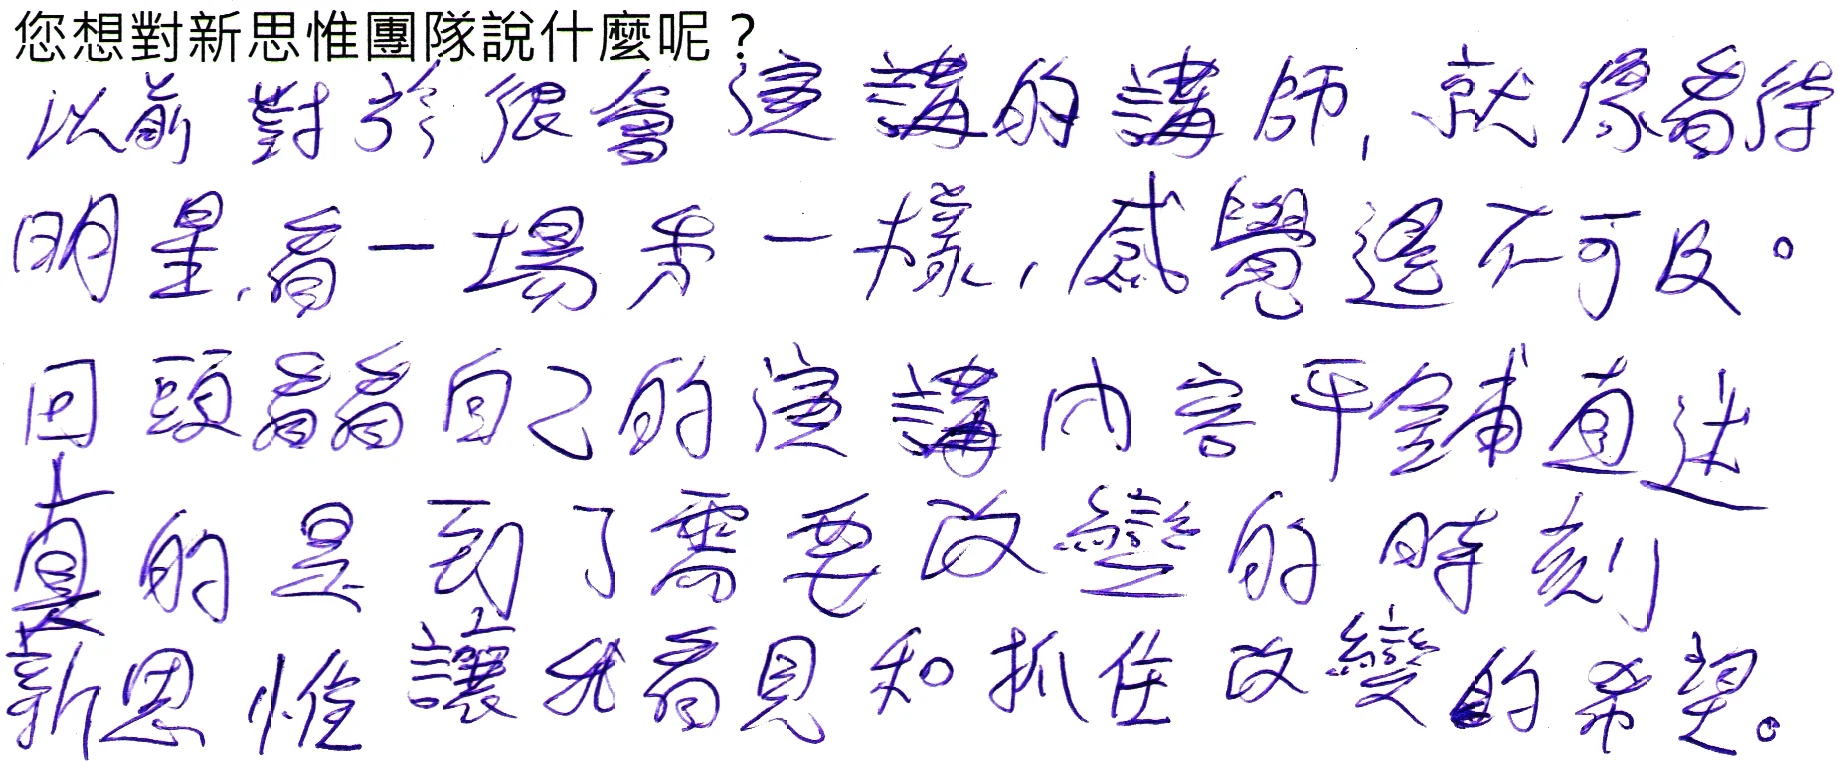 您想對新思惟團隊說什麼呢？
以前對於很會演講的講師,就像看待
明星,看一場秀一樣,感覺遙不可及。
回頭看看自己的演講內容平鋪直述
真的是到了需要改變的時刻
新思惟讓我看見和抓住改變的希望。